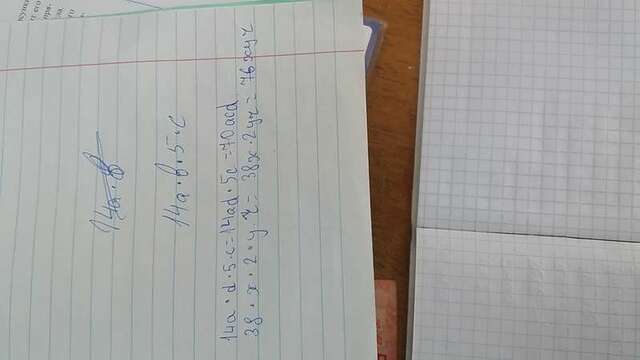 14a · b · 5 · c
14a · d · 5 · c = 14ad · 5c = 70acd
38 · x · 2 · y z = 38x · 2yz = 76xyz